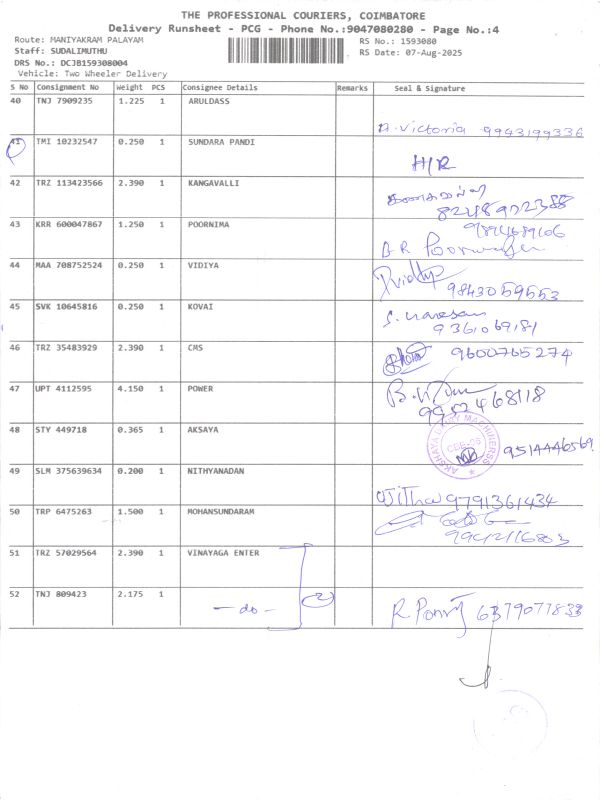 THE PROFESSIONAL COURIERS, COIMBATORE
Delivery Runsheet - PCG - Phone No.:9047080280 - Page No.:4
Route: MANIYAKRAM PALAYAM
RS No.: 1593080
Staff: SUDALIMUTHU
RS Date: 07-Aug-2025
DRS No.: DCJB159308004
Vehicle: Two Wheeler Delivery
S No Consignment No Weight PCS Consignee Details Remarks Seal & Signature
40 TNJ 7909235 1.225 1 ARULDASS
A. Victoria 9943199336
41 TMI 10232547 0.250 1 SUNDARA PANDI
H/R
42 TRZ 113423566 2.390 1 KANGAVALLI
8248922388
43 KRR 600047867 1.250 1 POORNIMA
9894689106
44 MAA 708752524 0.250 1 VIDIYA
9843059553
45 SVK 10645816 0.250 1 KOVAI
9361069181
46 TRZ 35483929 2.390 1 CMS
9600765274
47 UPT 4112595 4.150 1 POWER
48 STY 449718 0.365 1 AKSAYA
9514446569
49 SLM 375639634 0.200 1 NITHYANADAN
9791361434
50 TRP 6475263 1.500 1 MOHANSUNDARAM
51 TRZ 57029564 2.390 1 VINAYAGA ENTER
52 TNJ 809423 2.175 1
- do - 2